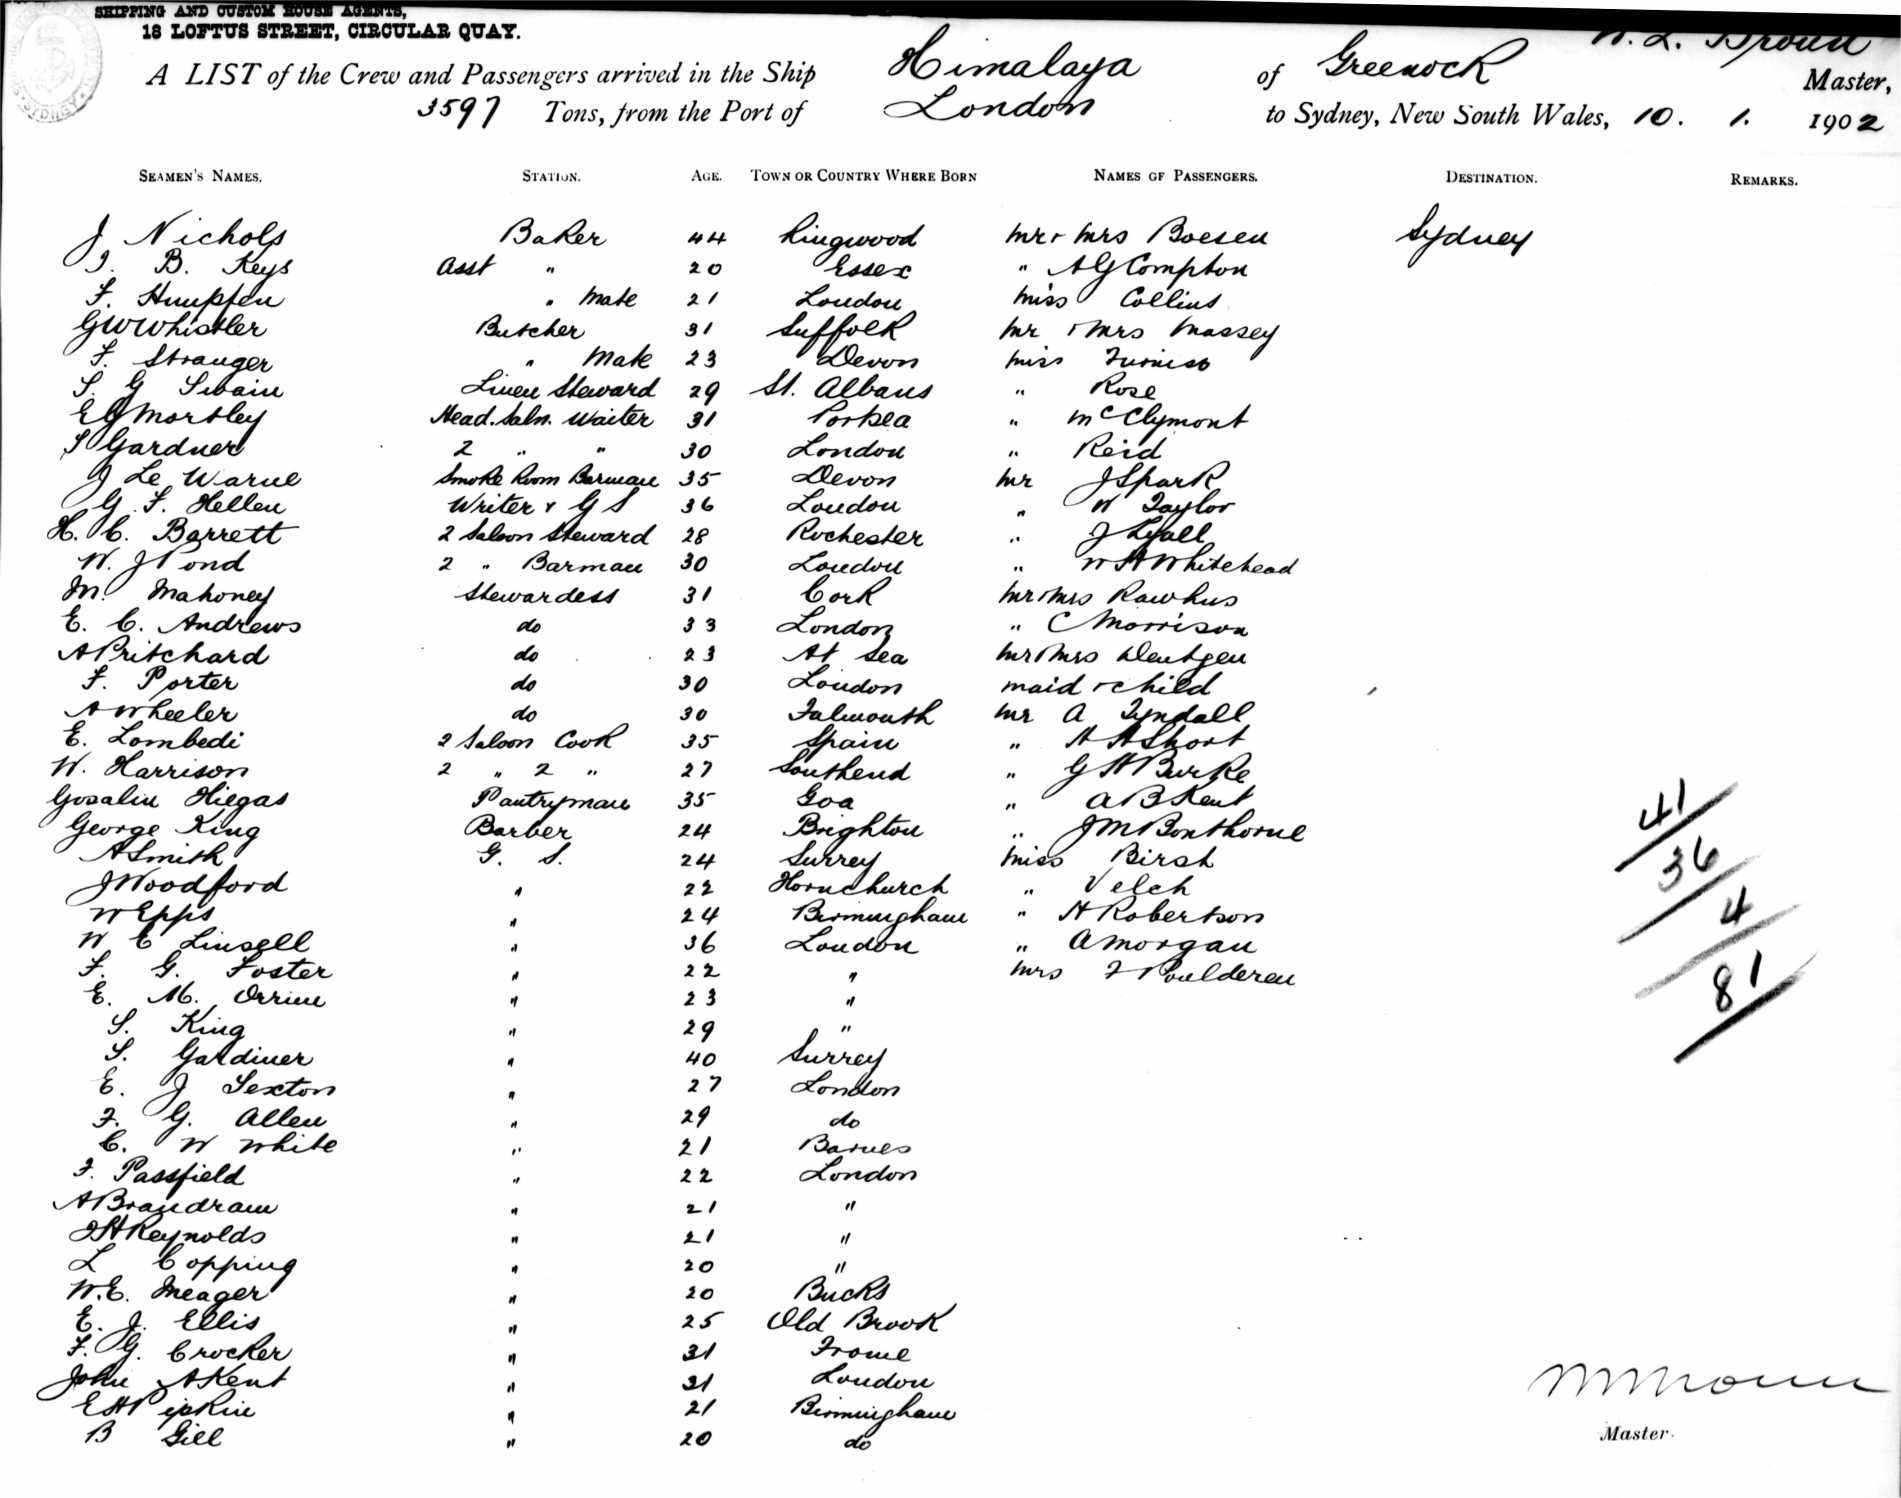 SHIPPING AND CUSTOM HOUSE AGENTS,
18 LOFTUS STREET, CIRCULAR QUAY.
W. L. Broun
A LIST of the Crew and Passengers arrived in the Ship Himalaya of Greenock Master,
3597 Tons, from the Port of London to Sydney, New South Wales, 10. 1. 1902
SEAMEN'S NAMES. STATION. AGE. TOWN OR COUNTRY WHERE BORN NAMES OF PASSENGERS. DESTINATION. REMARKS.
J Nichols Baker 44 Ringwood Mr & Mrs Boesen Sydney
J. B. Keys Asst " 20 Essex " A G Compton
F. Humpfen " Mate 21 London Miss Collins
G W Whistler Butcher 31 Suffolk Mr & Mrs Massey
F. Stranger " Mate 23 Devon Miss Furniss
S. G Swain Linen Steward 29 St. Albans " Rose
E G Mortley Head. Saln. Waiter 31 Portsea " McClymont
S Gardner 2 " " 30 London " Reid
J Le Warne Smoke Room Barman 35 Devon Mr J Spark
G. F. Hellen Writer & G S 36 London " W Taylor
H. C. Barrett 2 Saloon Steward 28 Rochester " J Lyall
W. J Pond 2 " Barman 30 London " W H Whitehead
M. Mahoney Stewardess 31 Cork Mr & Mrs Rawkus
E. C. Andrews do 33 London " C Morrison
A Pritchard do 23 At Sea Mr & Mrs Dentgen
F. Porter do 30 London maid & child
A Wheeler do 30 Falmouth Mr A Tyndall
E. Lombedi 2 Saloon Cook 35 Spain " H A Short
W. Harrison 2 " 2 " 27 Southend " G H Burke
Gosalin Hiegas Pantryman 35 Goa " A B Kent
George King Barber 24 Brighton " J M Bonthorne
A Smith G. S. 24 Surrey Miss Birch
J Woodford " 22 Hornchurch " Velch
W Epps " 24 Birmingham " H Robertson
W E Linsell " 36 London " A Morgan
F. G. Foster " 22 " Mrs F Poulderen
E. M. Orrine " 23 "
S. King " 29 "
S. Gardiner " 40 Surrey
E. J Sexton " 27 London
F. G. Allen " 29 do
C. W White " 21 Barnes
F. Passfield " 22 London
A Brandram " 21 "
J H Reynolds " 21 "
L Copping " 20 "
W. E. Meager " 20 Bucks
E. J. Ellis " 25 Old Brook
F. G. Crocker " 31 Frome
John A Kent " 31 London
E H Pipkin " 21 Birmingham
B Gill " 20 do
41
36
4
81
Master.